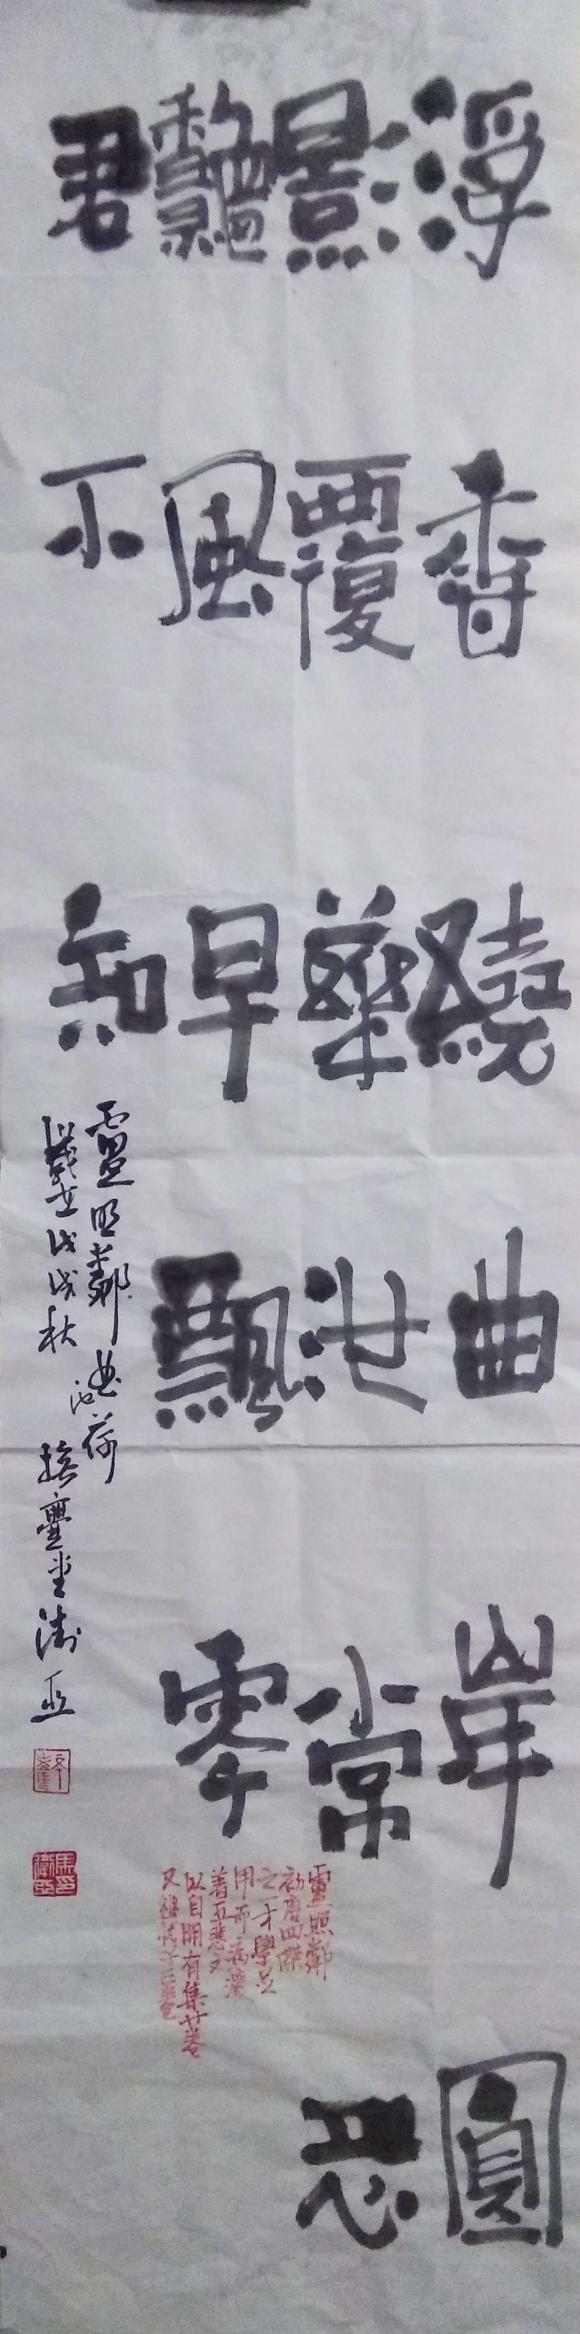 浮香繞曲岸圓
影覆華池常恐
龝風早飄零
君不知
盧照鄰曲池荷
歲在戊戌秋
盧照鄰
初唐四傑
之一才學足
用而病
著五悲文
以自明有集廿卷
又三卷